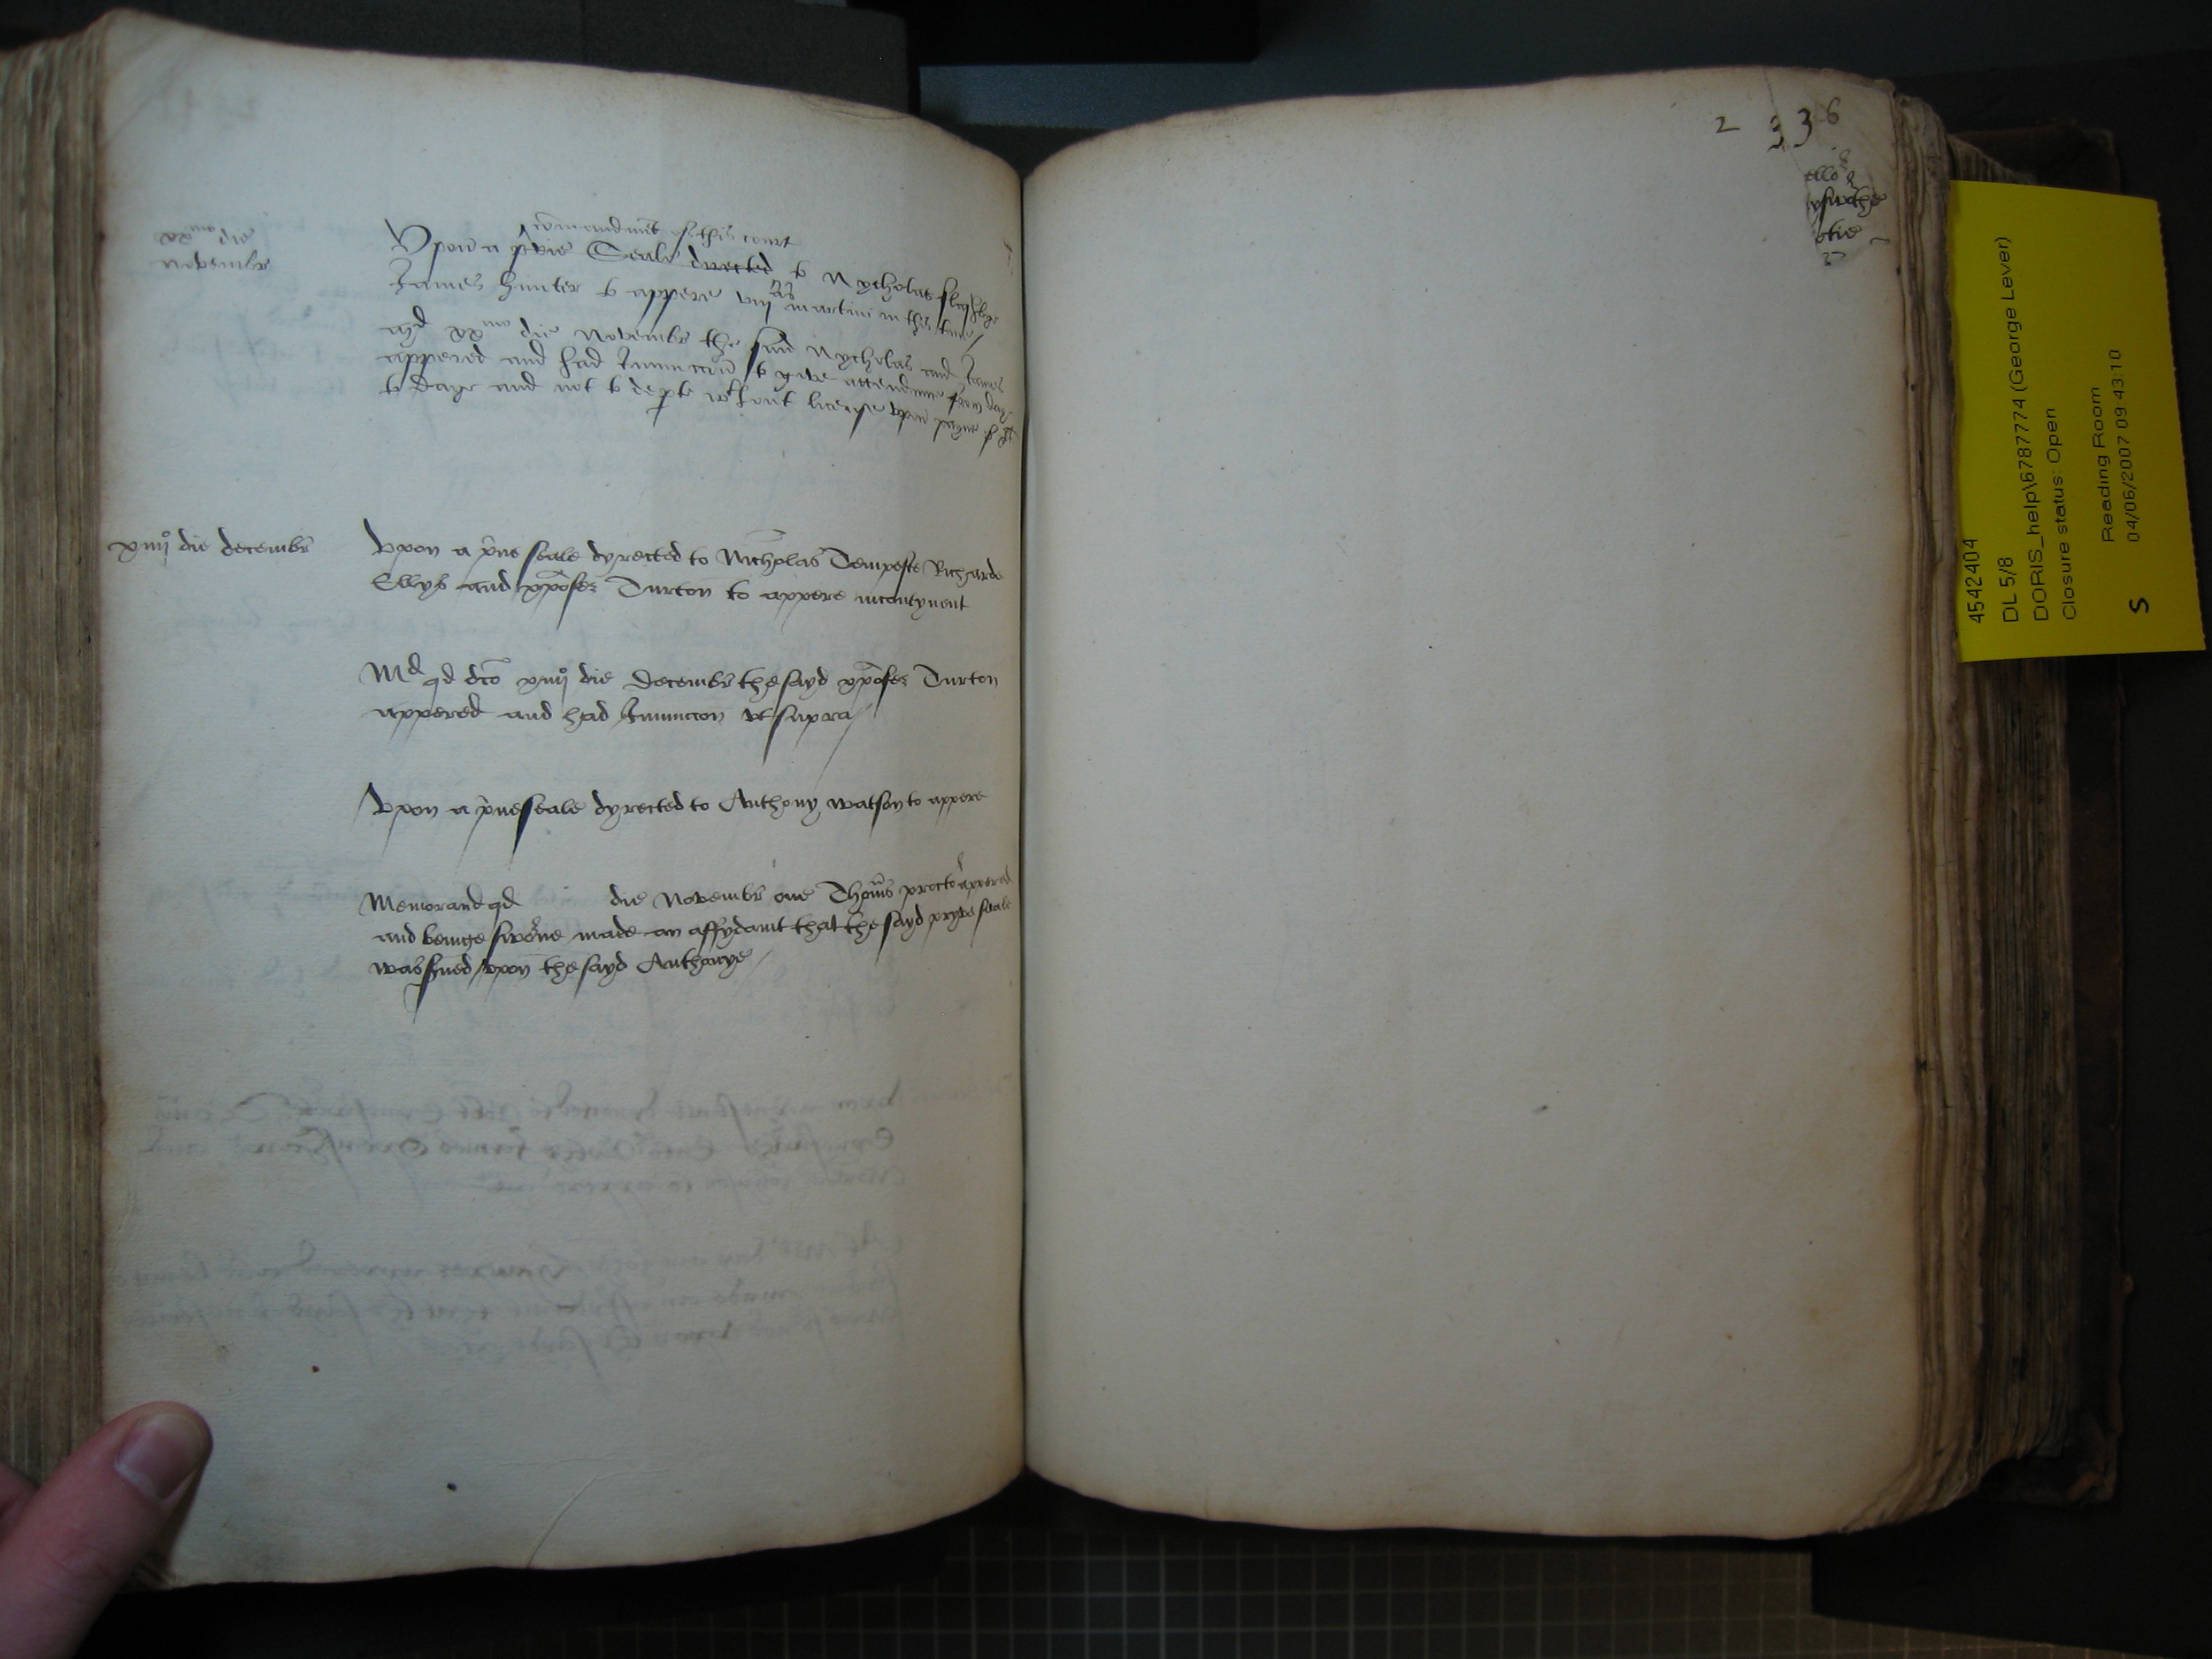 xxmo die
Novembr
comandmt of this court
Upon a privie Seale directed to Nycholas
James Hunter to appere viij as martini in this terme
md xxmo die Novembr the said Nycholas and James
appered and had Iniunccion to give attendance from day
to daye and not to depte wthout license upon payne of
xiiijo die decembr
Upon a pue seale dyrected to Nicholas Tempeste Richarde
Ellys and xpofer Turton to appere incontynent
Md qd dco xiiijo die Decembr the sayd xpofer Turton
appered and had Iniunccon ut supra
Upon a pue seale dyrected to Anthony watson to appere
Memorand qd die Novembr one Thoms proctor appered
and beinge sworne made an affydavit that the sayd pryve seale
was sued upon the sayd Anthonye
2 336
4542404
DL 5/8
DORIS_help\6787774 (George Lever)
Closure status: Open
Reading Room
04/06/2007 09:43:10
S